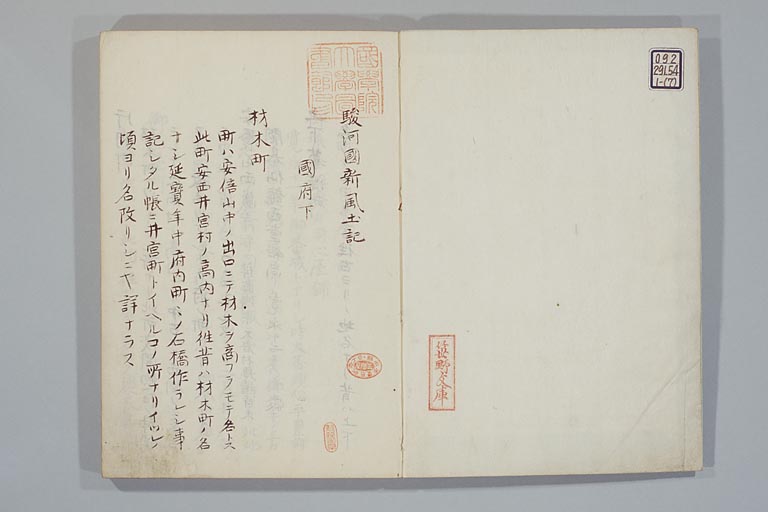 092
291.54
1-(7)
佐野文庫
國學院
大學圖
書館印
駿河國新風土記
國府下
材木町
町ハ安倍山中ノ出口ニテ材木ヲ商フヲモテ名トス
此町安西井宮村ノ高内ナリ徃昔ハ材木町ノ名
ナシ延寶年中府内町々ノ石橋作ラレシ事
記シタル帳ニ井宮町トイヘルコノ所ナリイツレノ
頃ヨリ名改リシニヤ詳ナラス